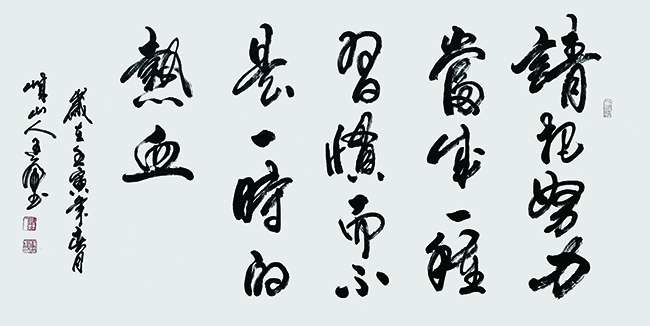 請把努力
當成一種
習慣而不
是一時的
熱血
歲在壬寅年春月
山人書